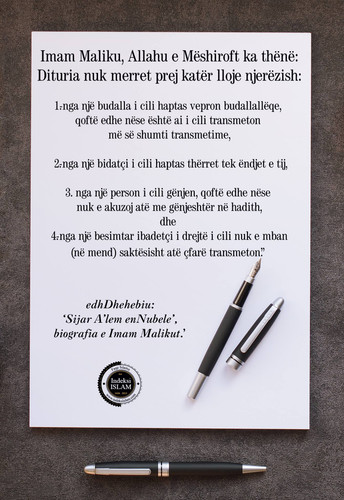 Imam Maliku, Allahu e Mëshiroft ka thënë:
Dituria nuk merret prej katër lloje njerëzish:
1:nga një budalla i cili haptas vepron budallallëqe,
qoftë edhe nëse është ai i cili transmeton
më së shumti transmetime,
2:nga një bidatçi i cili haptas thërret tek ëndjet e tij,
3. nga një person i cili gënjen, qoftë edhe nëse
nuk e akuzoj atë me gënjeshtër në hadith,
dhe
4:nga një besimtar ibadetçi i drejtë i cili nuk e mban
(në mend) saktësisht atë çfarë transmeton."
edhDhehebiu:
‘Sijar A’lem enNubele’,
biografia e Imam Malikut.’
Indeksi
ISLAM